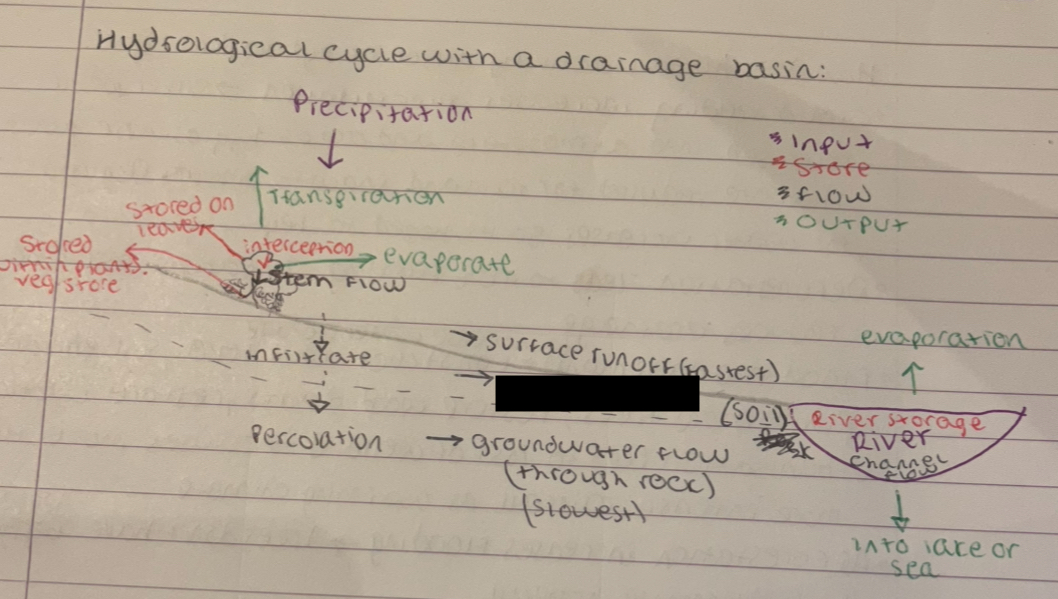 Hydrological cycle with a drainage basin:
Precipitation
* Input
* Store
* Flow
* Output
Transpiration
Stored on
leaves
Stored
plants.
veg store
interception
evaporate
Stem flow
infiltrate
surface runoff (fastest)
evaporation
(soil)
River storage
River
channel
flow
Percolation
groundwater flow
(through rock)
(slowest)
into lake or
sea